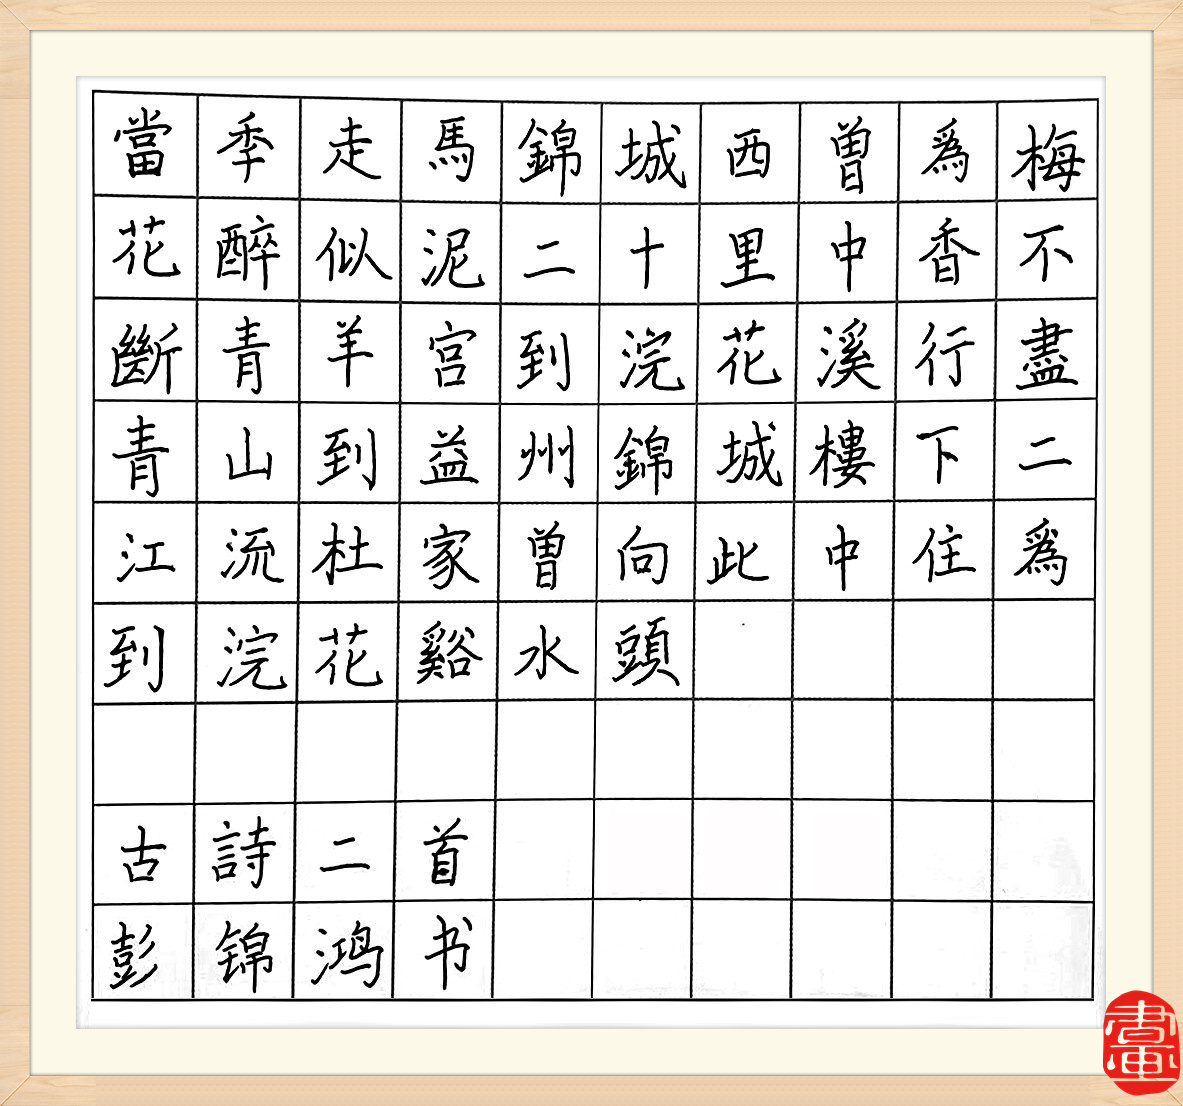 當季走馬錦城西曾爲梅
花醉似泥二十里中香不
斷青羊宫到浣花溪行盡
青山到益州錦城樓下二
江流杜家曾向此中住爲
到浣花谿水頭
古詩二首
彭锦鸿书